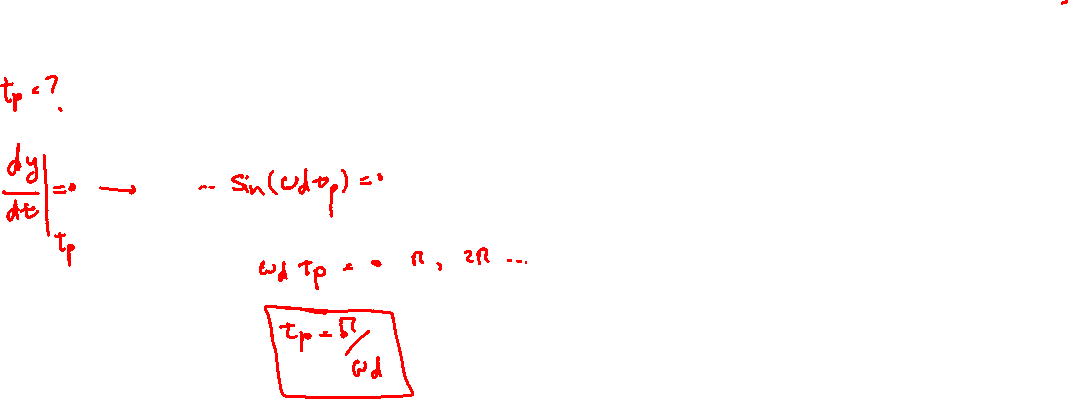 tp = ?
dy/dt |tp = 0 → ... sin(ωd tp) = 0
ωd tp = 0 π, 2π ...
tp = π/ωd